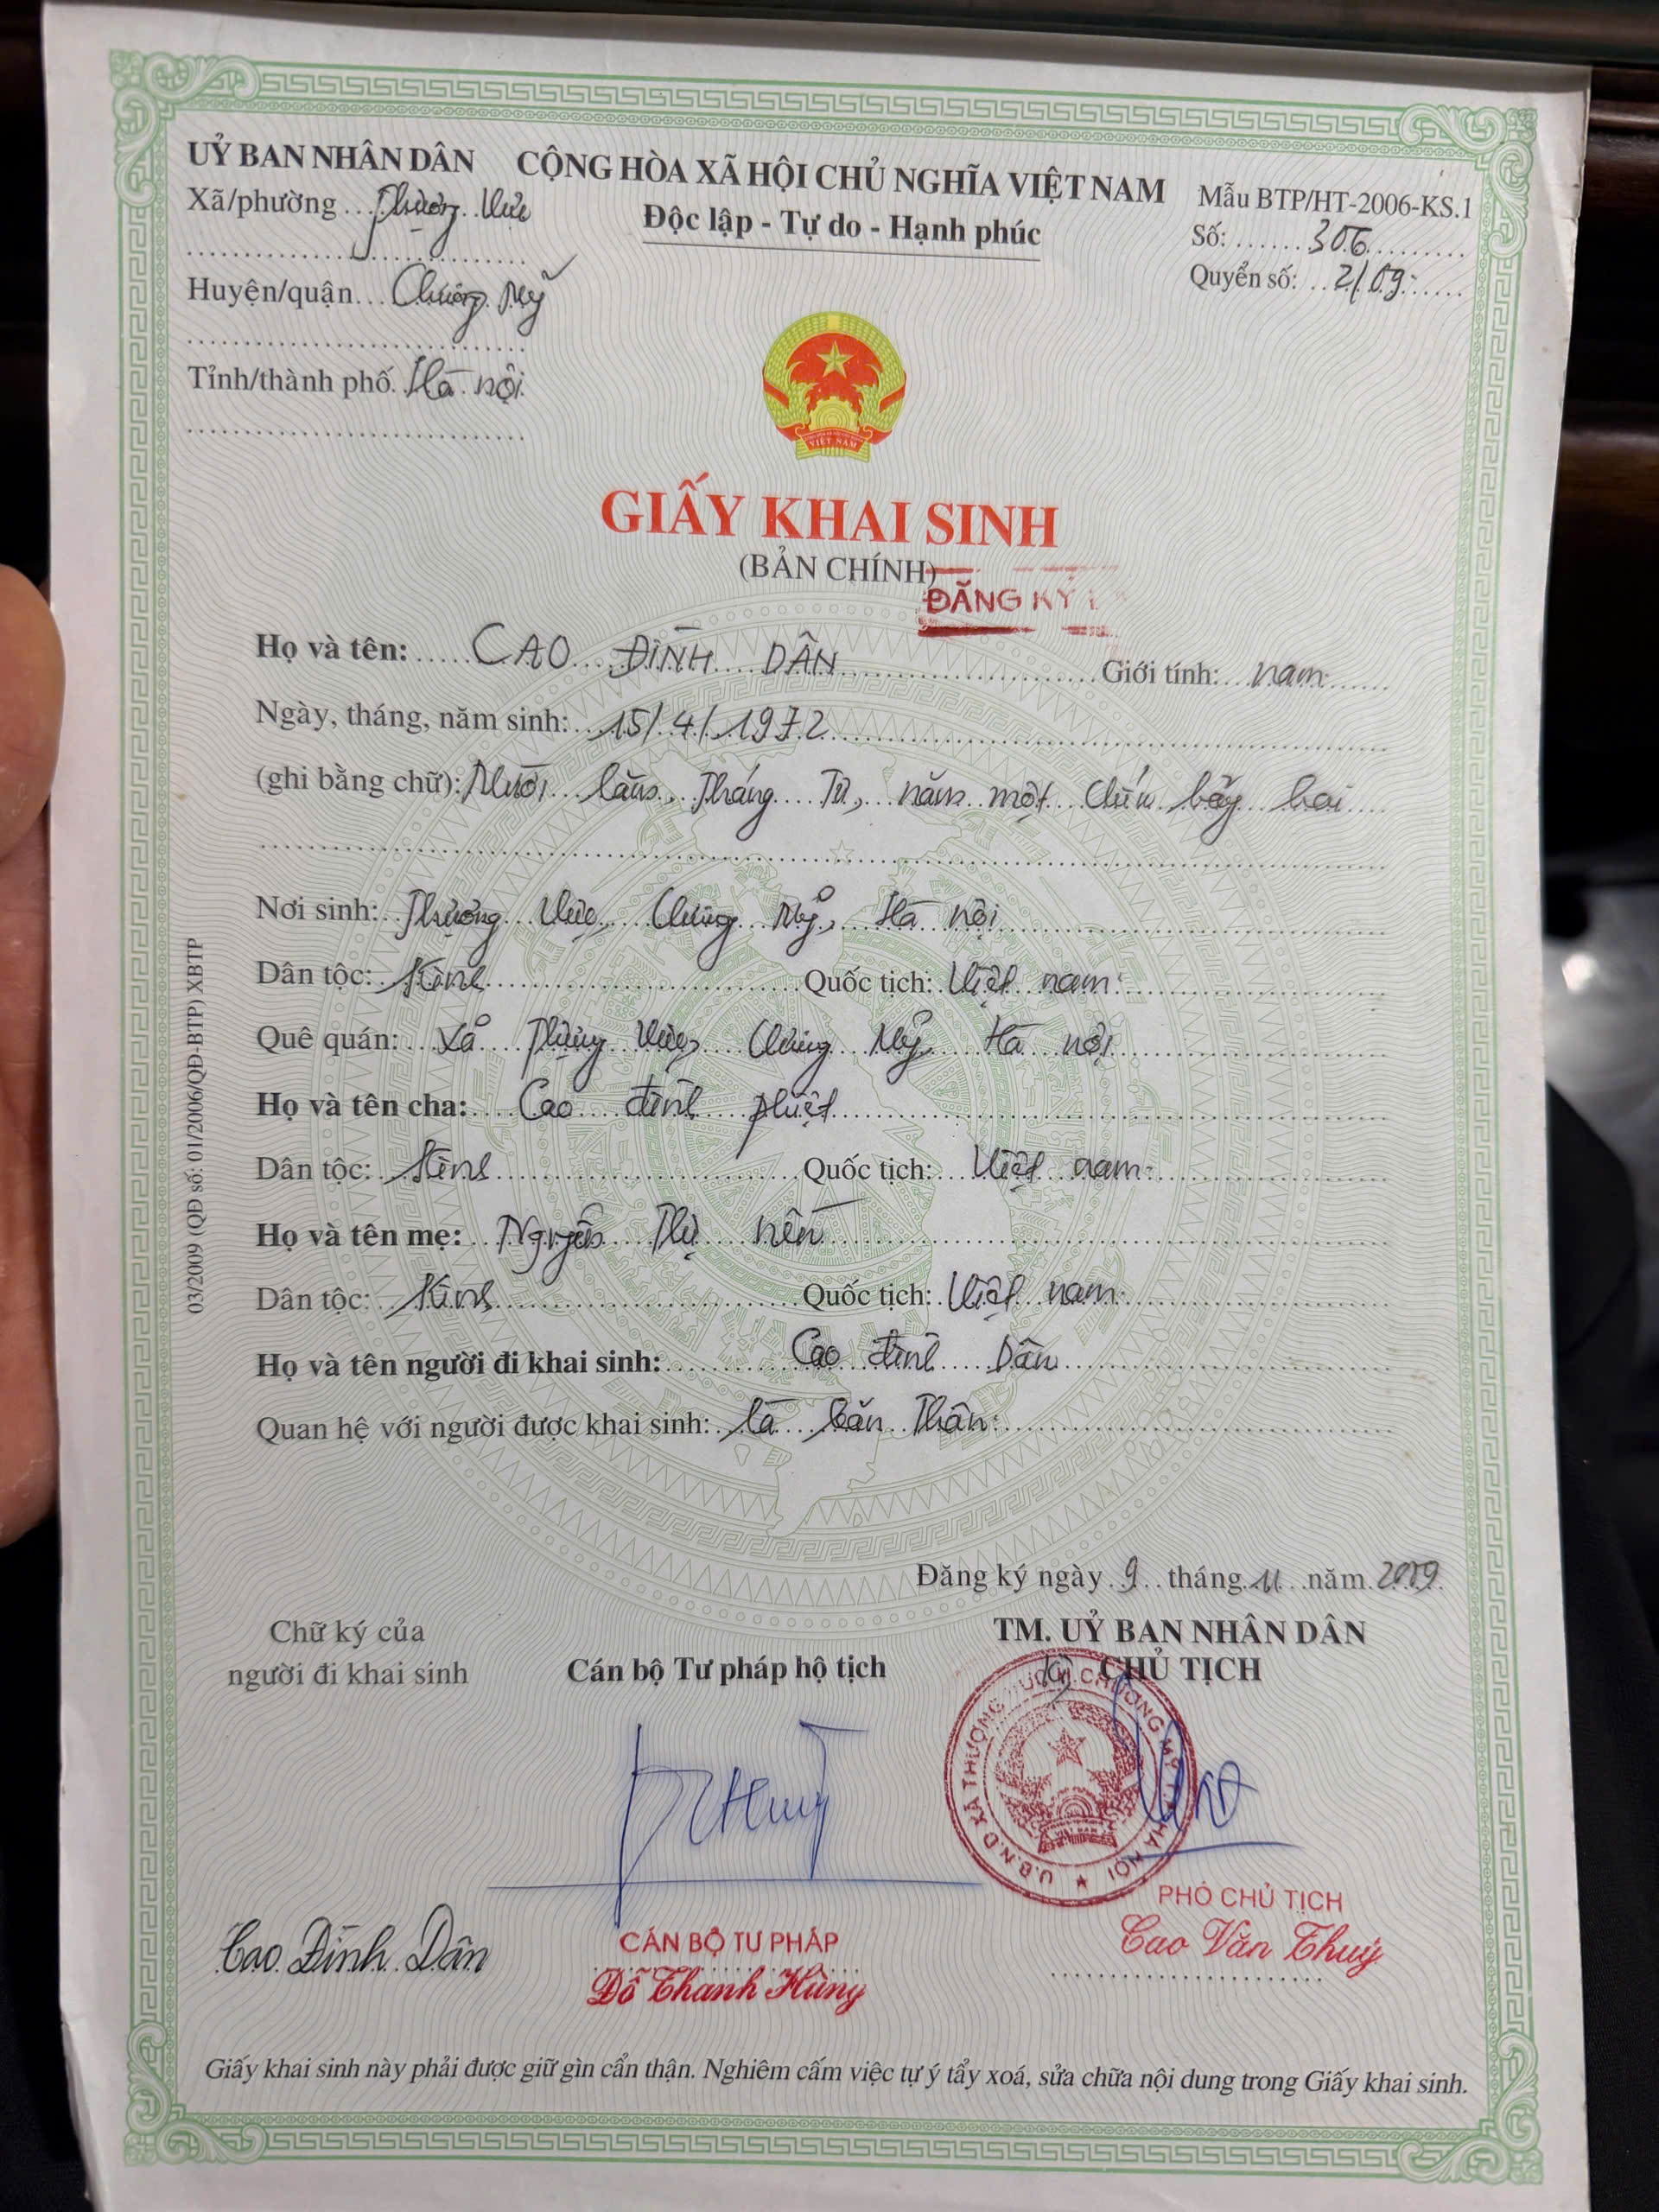 UỶ BAN NHÂN DÂN
Xã/phường Thượng Vực
Huyện/quận Chương Mỹ
Tỉnh/thành phố Hà nội
CỘNG HÒA XÃ HỘI CHỦ NGHĨA VIỆT NAM
Độc lập - Tự do - Hạnh phúc
Mẫu BTP/HT-2006-KS.1
Số: 306
Quyển số: 2/09
VIỆT NAM
GIẤY KHAI SINH
(BẢN CHÍNH)
ĐĂNG KÝ
Họ và tên: CAO ĐÌNH DÂN Giới tính: nam
Ngày, tháng, năm sinh: 15/4/1972
(ghi bằng chữ): Mười lăm, Tháng Tư, năm một chín bảy hai
Nơi sinh: Thượng Vực, Chương Mỹ, Hà nội
Dân tộc: Kinh Quốc tịch: Việt nam
Quê quán: Xã Thượng Vực, Chương Mỹ, Hà nội
Họ và tên cha: Cao đình phiệt
Dân tộc: Kinh Quốc tịch: Việt nam
Họ và tên mẹ: Nguyễn Thị nền
Dân tộc: Kinh Quốc tịch: Việt nam
Họ và tên người đi khai sinh: Cao đình Dân
Quan hệ với người được khai sinh: là bản Thân
03/2009 (QĐ số: 01/2006/QĐ-BTP) XBTP
Đăng ký ngày 9 tháng 11 năm 2009
Chữ ký của
người đi khai sinh
Cán bộ Tư pháp hộ tịch
TM. UỶ BAN NHÂN DÂN
CHỦ TỊCH
U.B.N.D XÃ THƯỢNG CHƯƠNG MỸ HÀ NỘI
Cao Đình Dân
CÁN BỘ TƯ PHÁP
Đỗ Thanh Hùng
PHÓ CHỦ TỊCH
Cao Văn Thuỷ
Giấy khai sinh này phải được giữ gìn cẩn thận. Nghiêm cấm việc tự ý tẩy xoá, sửa chữa nội dung trong Giấy khai sinh.